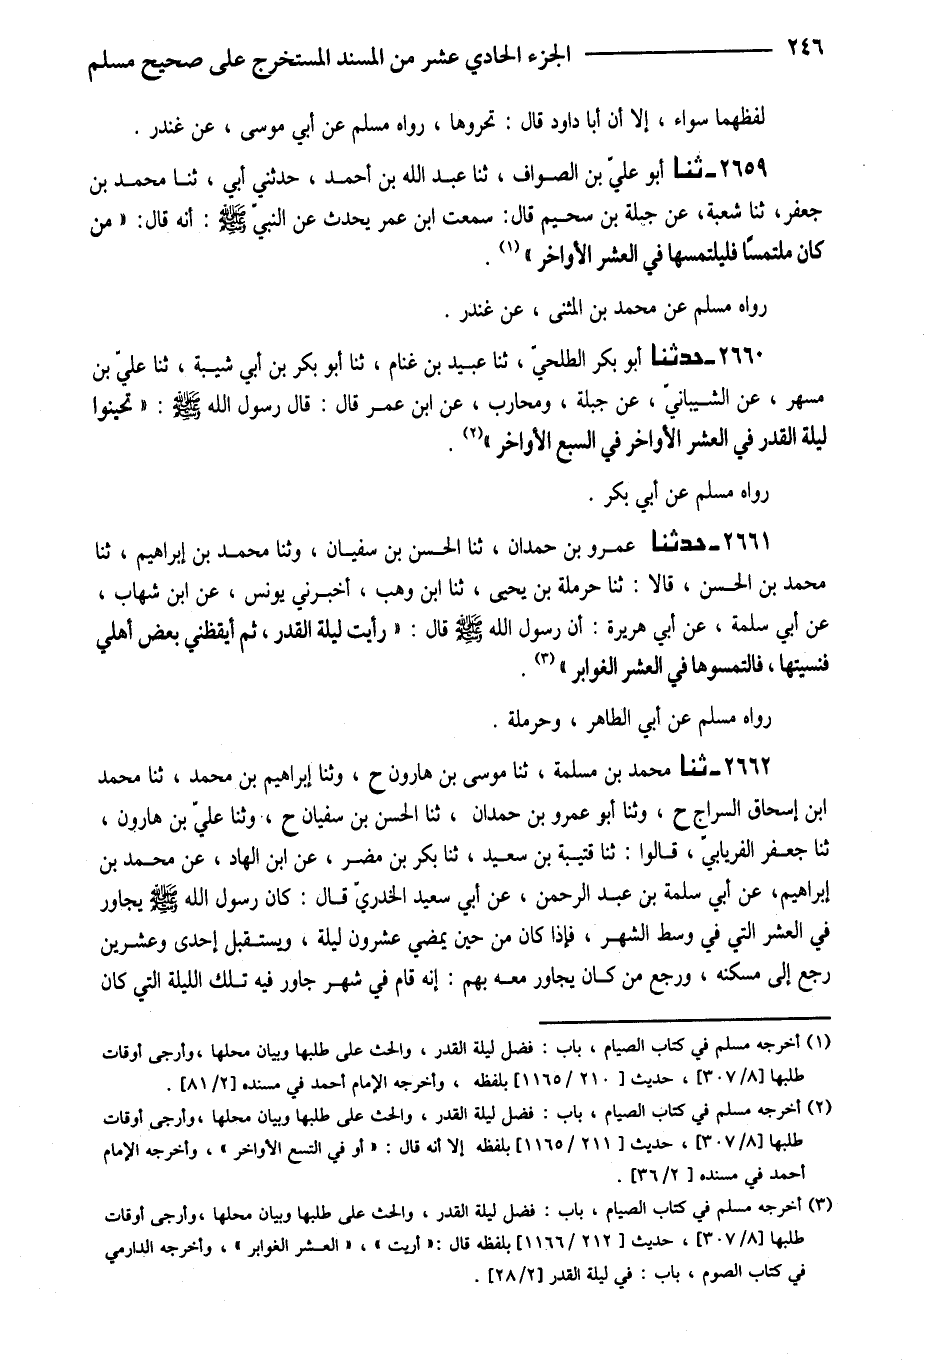 ٢٤٦ الجزء الحادي عشر من المسند المستخرج على صحيح مسلم
لفظهما سواء ، إلا أن أبا داود قال : تحروها ، رواه مسلم عن أبي موسى ، عن غندر .
٢٦٥٩ـ ثنا أبو عليّ بن الصواف ، ثنا عبد الله بن أحمد ، حدثني أبي ، ثنا محمد بن
جعفر، ثنا شعبة، عن جبلة بن سحيم قال: سمعت ابن عمر يحدث عن النبيّ ﷺ : أنه قال: « من
كان ملتمسًا فليلتمسها في العشر الأواخر » (١) .
رواه مسلم عن محمد بن المثنى ، عن غندر .
٢٦٦٠ـ حدثنا أبو بكر الطلحيّ ، ثنا عبيد بن غنام ، ثنا أبو بكر بن أبي شيبة ، ثنا عليّ بن
مسهر ، عن الشيبانيّ ، عن جبلة ، ومحارب ، عن ابن عمر قال : قال رسول الله ﷺ : « تحينوا
ليلة القدر في العشر الأواخر في السبع الأواخر »(٢) .
رواه مسلم عن أبي بكر .
٢٦٦١ـ حدثنا عمرو بن حمدان ، ثنا الحسن بن سفيان ، وثنا محمد بن إبراهيم ، ثنا
محمد بن الحسن ، قالا : ثنا حرملة بن يحيى ، ثنا ابن وهب ، أخبرني يونس ، عن ابن شهاب ،
عن أبي سلمة ، عن أبي هريرة : أن رسول الله ﷺ قال : « رأيت ليلة القدر ، ثم أيقظني بعض أهلي
فنسيتها ، فالتمسوها في العشر الغوابر » (٣) .
رواه مسلم عن أبي الطاهر ، وحرملة .
٢٦٦٢ـ ثنا محمد بن مسلمة ، ثنا موسى بن هارون ح ، وثنا إبراهيم بن محمد ، ثنا محمد
ابن إسحاق السراج ح ، وثنا أبو عمرو بن حمدان ، ثنا الحسن بن سفيان ح ، وثنا عليّ بن هارون ،
ثنا جعفر الفريابيّ ، قالوا : ثنا قتيبة بن سعيد ، ثنا بكر بن مضر ، عن ابن الهاد ، عن محمد بن
إبراهيم، عن أبي سلمة بن عبد الرحمن ، عن أبي سعيد الخدريّ قال : كان رسول الله ﷺ يجاور
في العشر التي في وسط الشهر ، فإذا كان من حين يمضي عشرون ليلة ، ويستقبل إحدى وعشرين
رجع إلى مسكنه ، ورجع من كان يجاور معه بهم : إنه قام في شهر جاور فيه تلك الليلة التي كان
(١) أخرجه مسلم في كتاب الصيام ، باب : فضل ليلة القدر ، والحث على طلبها وبيان محلها ،وأرجى أوقات
طلبها [٣٠٧/٨] ، حديث [ ٢١٠ /١١٦٥] بلفظه ، وأخرجه الإمام أحمد في مسنده [٨١/٢] .
(٢) أخرجه مسلم في كتاب الصيام ، باب : فضل ليلة القدر ، والحث على طلبها وبيان محلها ،وأرجى أوقات
طلبها [٣٠٧/٨] ، حديث [ ٢١١ /١١٦٥] بلفظه إلا أنه قال : « أو في التسع الأواخر » ، وأخرجه الإمام
أحمد في مسنده [ ٣٦/٢] .
(٣) أخرجه مسلم في كتاب الصيام ، باب : فضل ليلة القدر ، والحث على طلبها وبيان محلها ،وأرجى أوقات
طلبها [٣٠٧/٨] ، حديث [ ٢١٢ /١١٦٦] بلفظه قال :« أريت » ، « العشر الغوابر » ، وأخرجه الدارمي
في كتاب الصوم ، باب : في ليلة القدر [٢٨/٢] .